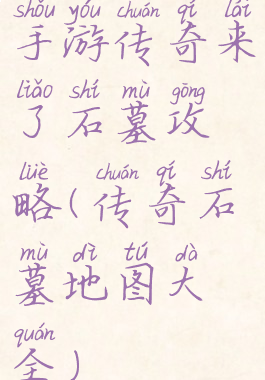 shǒu yóu chuán qí lái
手游传奇来
liǎo shí mù gōng
了石墓攻
lüè chuán qí shí
略(传奇石
mù dì tú dà
墓地图大
quán
全)